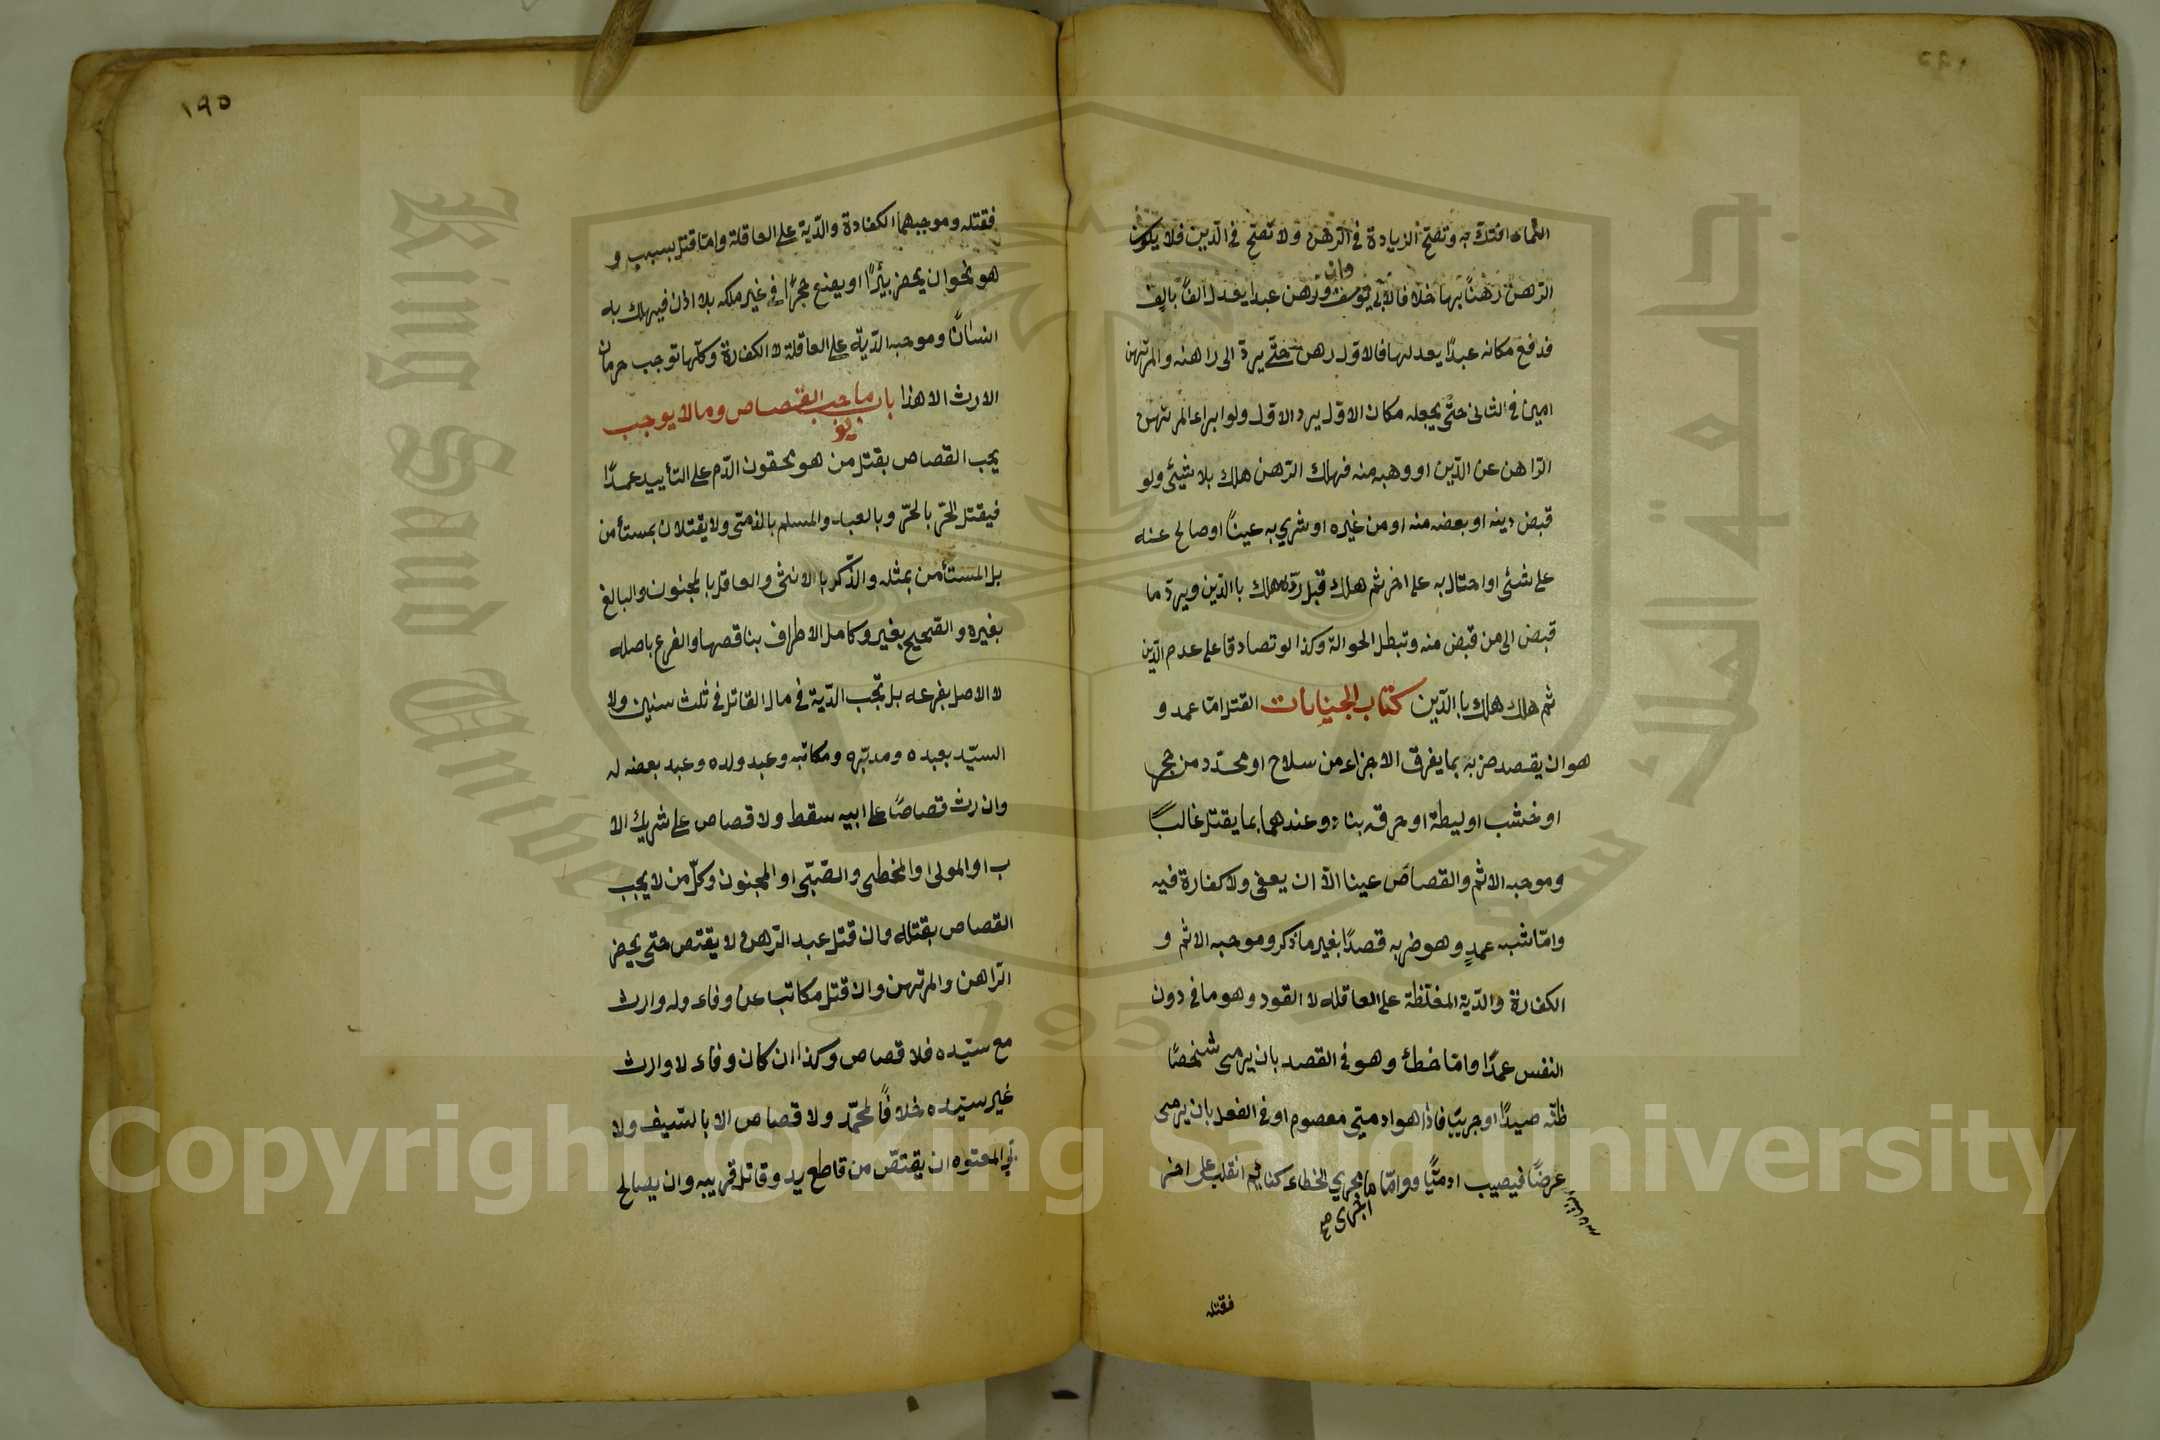 النماء افتك به وتصح الزيادة في الرهن ولا تصح في الدين فلا يكون
الرهن رهنًا بها خلافا لابي يوسف وان رهن عبدا يعدل الفًا بالف
فدفع مكانه عبدًا يعدلها فالاول رهن حتّى يردّ الى راهنه والمرتهن
امين في الثاني حتّى يجعله مكان الاول برد الاول ولو ابراء المرتهن
الراهن عن الدّين او وهبه منه فهلك الرّهن هلك بلا شيئ ولو
قبض دينه او بعضه منه او من غيره او شري به عينًا او صالح عنه
على شيئ او احتال به على اخر ثم هلك قبل ردّه هلك بالدّين ويردّ ما
قبض الى من قبض منه وتبطل الحوالة وكذا لو تصادقا على عدم الدّين
ثم هلك هلك بالدّين كتاب الجنايات القتل امّا عمد و
هو ان يقصد ضربه بما يفرق الاجزاء من سلاح او محدّد من حجر
او خشب او ليطة او حرقه بنار وعندهما بما يقتل غالبًا
وموجبه الاثم والقصاص عينا الّا ان يعفى ولا كفارة فيه
وامّا شبه عمدٍ وهو ضربه قصدًا بغير ما ذكر وموجبه الاثم و
الكفارة والدّية المغلّظة على العاقله لا القود وهو ما في دون
النفس عمدًا وامّا خطأ وهو في القصد بان يرمى شخصًا
ظنّه صيدًا او حربيّا فاذا هو ادميّ معصوم او في الفعل بان يرمى
غرضًا فيصيب ادميًّا وامّا ما اجري مجرى الخطاء كنائم انقلب على اخر
فقتله
١٩٥
فقتله وموجبهما الكفارة والدّية على العاقلة وامّا قتل بسبب و
هو نحو ان يحفر بئرًا او يضع حجرًا في غير ملكه بلا اذن فيهلك به
انسانًا وموجبه الدّية على العاقلة لا الكفارة وكلّها توجب حرمان
الارث الا هذا باب ما يوجب القصاص وما لا يوجب
يجب القصاص بقتل من هو محقون الدّم على التأبيد عمدًا
فيقتل الحرّ بالحرّ وبالعبد والمسلم بالذمّى ولا يقتلان بمستأمن
بل المستأمن بمثله والذّكر بالانثى والعاقل بالمجنون والبالغ
بغيره والصّحيح بغيره وكامل الاطراف بناقصها والفرع باصله
لا الاصل بفرعه بل تجب الدّية في مال القاتل في ثلث سنين ولا
السيّد بعبده ومدبّره ومكاتبه وعبد ولده وعبد بعضه له
وان رث قصاصًا على ابيه سقط ولا قصاص على شريك الا
ب او المولى او المخطى والصّبّى او المجنون وكلّ من لا يجب
القصاص بقتله وان قتل عبد الرّهن لا يقتص حتى يحضر
الرّاهن والمرتهن وان قتل مكاتب عن وفاء وله وارث
مع سيّده فلا قصاص وكذا ان كان وفاء لا وارث
غير سيّده خلافًا لمحمّد ولا قصاص الا بالسّيف ولا
بي المعتوه ان يقتصّ من قاطع يد وقاتل قريبه وان يصالح